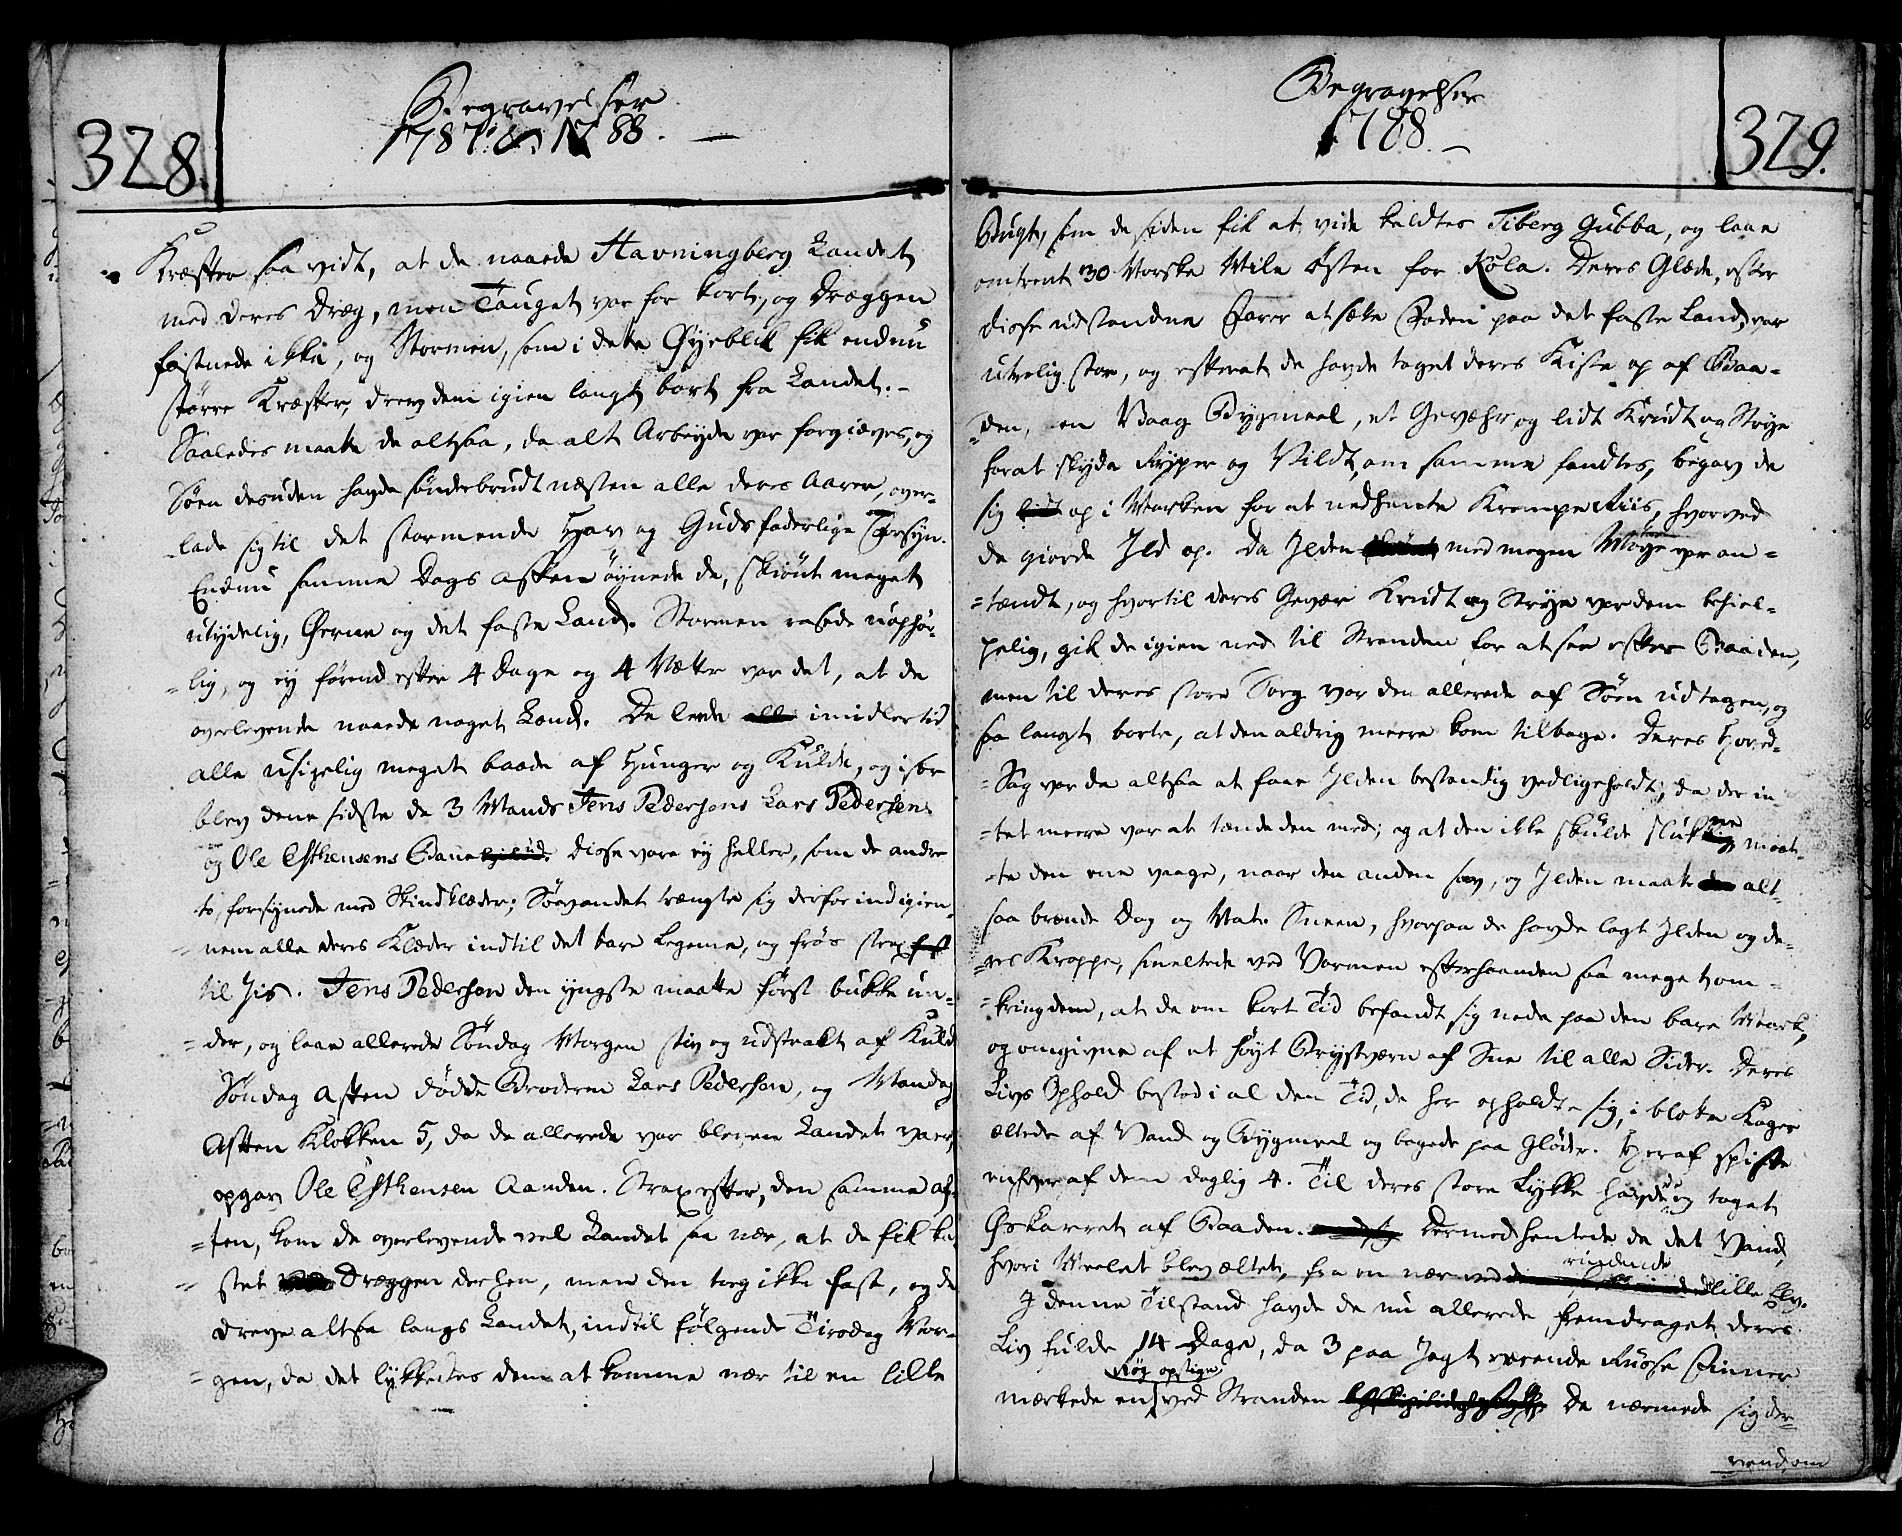 328.
Begravelser
1787 & 1788. —
Kræfter saa vidt, at de naaede Havningberg Landet
med deres Dræg, men Touget var for kort, og Dræggen
fæstnede ikke, og Stormen, som i dette Øyeblik fik endnu
større Kræfter, drev dem igien langt bort fra Landet. –
Saaledes maatte de altsaa, da alt Arbeyde var forgieves, og
Søen desuden havde sønderbrudt næsten alle deres Aarer, over-
lade sig til det stormende Hav og Guds faderlige Forsyn.
Endnu samme Dags Aften øynede de, skiønt meget
utydelig, Øerne og det faste Land. Stormen rasede uophør-
=lig, og ey førend efter 4 Dage og 4 Nætter var det, at de
overlevende naaede noget Land. De leede alle imidlertid
alle usigelig meget baade af Hunger og Kulde, og især
blev denne sidste de 3 Mænds Jens Pedersens Lars Pedersen
og Ole Esthensens Bane Disse vare ey heller, som de andre
to, forsynede med Skindklæder; Søevandet trængte sig derfor ind igien-
=nem alle deres Klæder indtil det bare Legeme, og frøs strax fast
til Iis. Jens Pedersen den yngste maatte først bukke un-
=der, og laae allerede Søndag Morgen stiv og udstrakt af Kuld
Søndag Aften døde Broderen Lars Pedersen, og Mandag
Aften Klokken 5, da de allerede var bleven Landet vaer,
opgav Ole Esthensen Aanden. Strax efter, den samme Af-
=ten, kom de overlevende vel Landet saa nær, at de fik ka-
=stet Dræggen derhen, men den tog ikke fast, og de
dreve altsaa langs Landet, indtil følgende Tirsdag Mor-
=gen, da det lykkedes dem at komme nær til en lille
Begravelser
1788. –
329.
Bugt, som de siden fik at vide kaldtes Tiberg Gubba, og laae
omtrent 30 Norske Mile Østen for Kola. Deres Glæde, efter
disse udstandne Farer at sætte Foden paa det faste Land, var
utrolig stor, og efterat de havde taget deres Kiste op af Baa-
=den, en Vaag Bygmeel, et Gevæhr og lidt Krudt og Strye
for at skyde Ryper og Vildt, om samme fandtes, begav de
sig lidt op i Marken for at nedhente Krempe Riis, hvorved
de giorde Ild op. Da Ilden med megen Møye var an-
=tændt, og hvortil deres Gevær Krudt og Strye var dem behiel-
pelig, gik de igien ned til Stranden for at see efter Baaden,
men til deres store Sorg var den allerede af Søen udtagen, og
saa langt borte, at den aldrig meere kom tilbage. Deres Hoved-
=Sag var da altsaa at faae Ilden bestandig vedligeholdt; da der in-
=tet meere var at tænde den med; og at den ikke skulde slukkne maat-
=te den ene vaage, naar den anden sov, og Ilden maatte den alt-
saa brænde Dag og Nat. Sneen, hvorpaa de havde lagt Ilden og de-
=res Kroppe, smeltede ved Varmen efterhaanden saa meget om-
=kring dem, at de om kort Tid befandt sig nede paa den bare Mark,
og omgivne af et høyt Brystværn af Snee til alle Sider. Deres
Livs Ophold bestod i al den Tid, de her opholdte sig, i bløte Kager
æltede af Vand og Bygmeel og bagede paa Gløder. Heraf spiste
enhver af dem daglig 4. Til deres store Lykke havde og taget
Øskarret af Baaden. Dermed hentede de det Vand,
hvori Meelet blev æltet, fra en nær ved rindende lille Elv.
I denne Tilstand havde de nu allerede fremdraget deres
Liv fulde 14 Dage, da 3 paa Jagt værende Russe Finner
mærkede en Røg opstige ved Stranden De nærmede sig der-